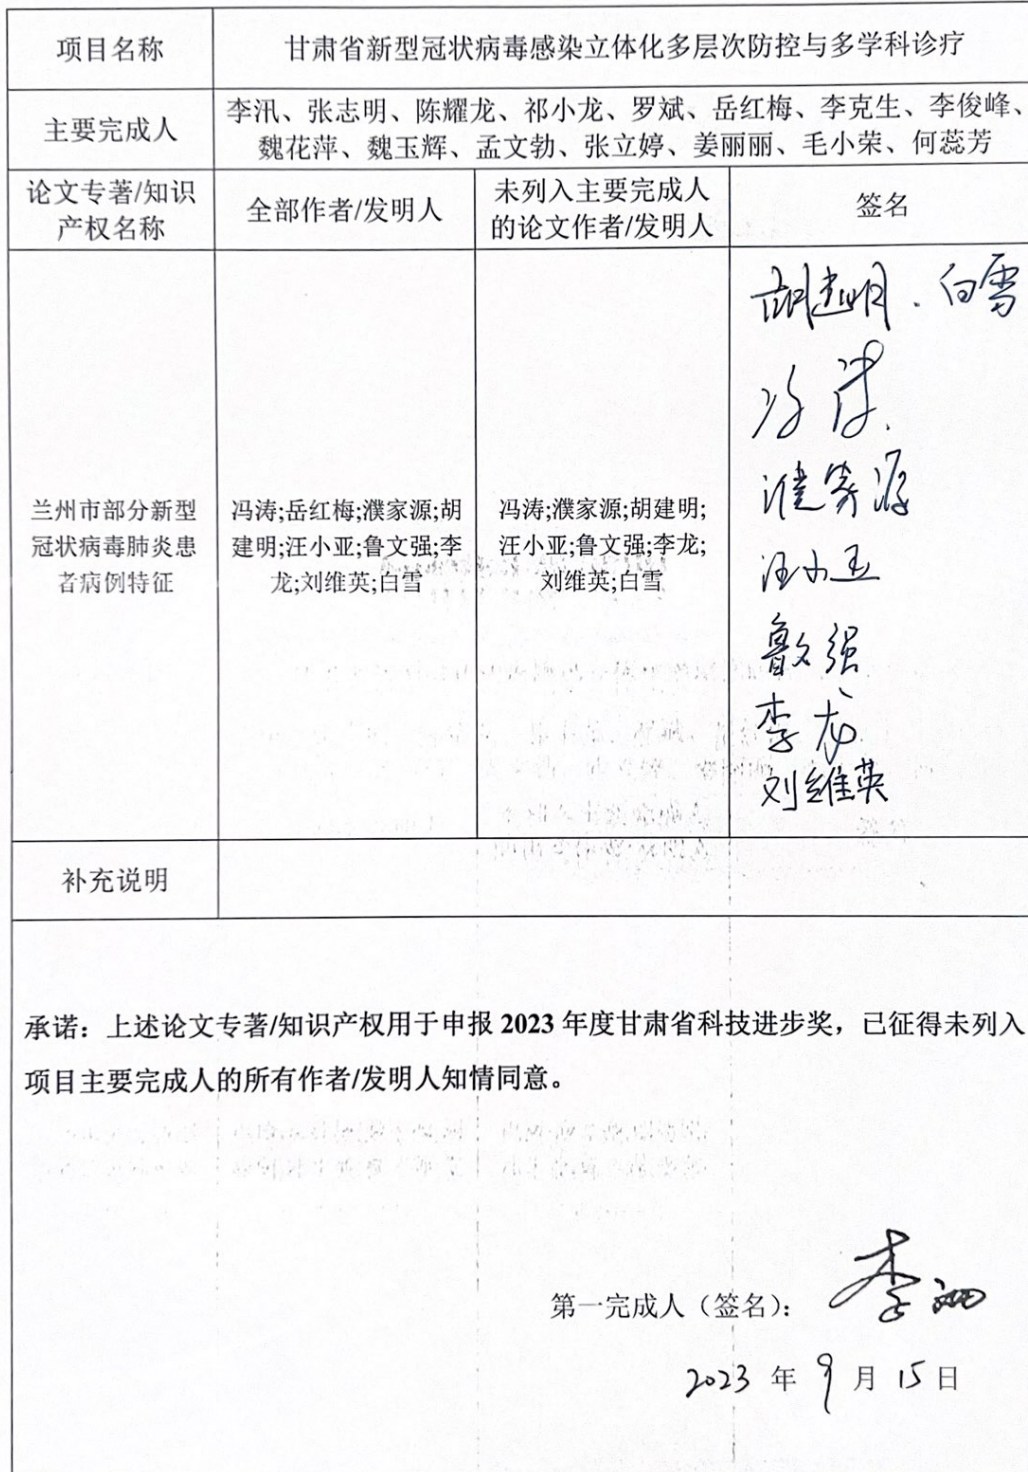 项目名称 甘肃省新型冠状病毒感染立体化多层次防控与多学科诊疗
主要完成人 李汛、张志明、陈耀龙、祁小龙、罗斌、岳红梅、李克生、李俊峰、
魏花萍、魏玉辉、孟文勃、张立婷、姜丽丽、毛小荣、何蕊芳
论文专著/知识
产权名称
全部作者/发明人
未列入主要完成人
的论文作者/发明人
签名
兰州市部分新型
冠状病毒肺炎患
者病例特征
冯涛;岳红梅;濮家源;胡
建明;汪小亚;鲁文强;李
龙;刘维英;白雪
冯涛;濮家源;胡建明;
汪小亚;鲁文强;李龙;
刘维英;白雪
胡建明、白雪
冯涛
濮家源
汪小亚
鲁文强
李龙
刘维英
补充说明
承诺：上述论文专著/知识产权用于申报 2023 年度甘肃省科技进步奖，已征得未列入
项目主要完成人的所有作者/发明人知情同意。
第一完成人（签名）： 李汛
2023 年 9 月 15 日